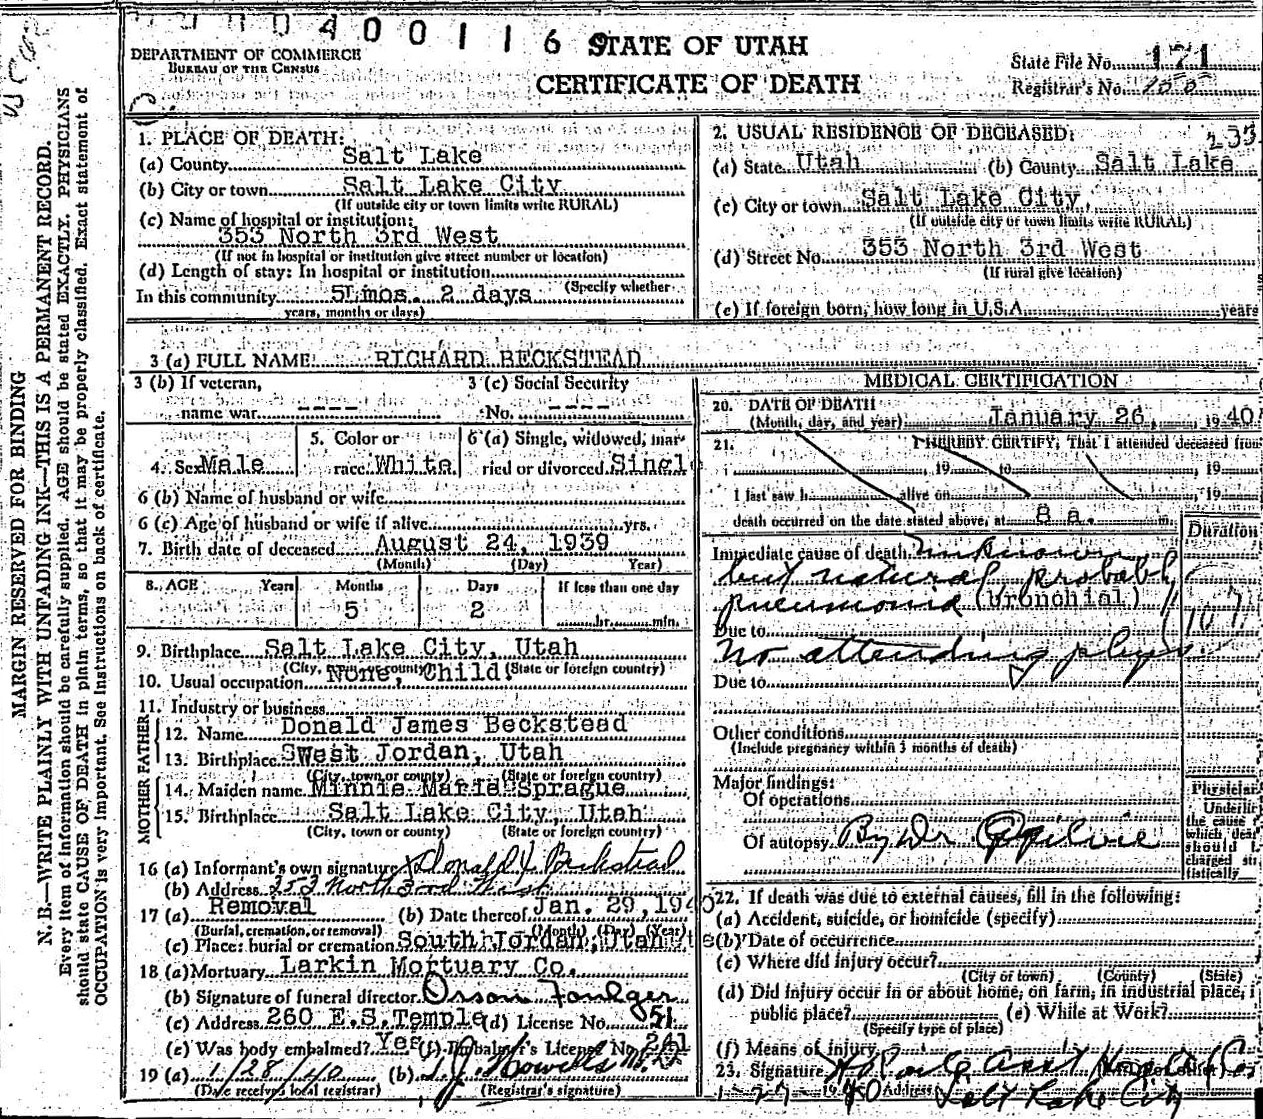 0400116 9
STATE OF UTAH
CERTIFICATE OF DEATH
DEPARTMENT OF COMMERCE
BUREAU OF THE CENSUS
State File No. 171
Registrar's No.
MARGIN RESERVED FOR BINDING
N. B.—WRITE PLAINLY WITH UNFADING INK—THIS IS A PERMANENT RECORD.
Every item of information should be carefully supplied. AGE should be stated EXACTLY. PHYSICIANS
should state CAUSE OF DEATH in plain terms, so that it may be properly classified. Exact statement of
OCCUPATION is very important. See Instructions on back of certificate.
1. PLACE OF DEATH:
(a) County Salt Lake
(b) City or town Salt Lake City
(If outside city or town limits write RURAL)
(c) Name of hospital or institution:
353 North 3rd West
(If not in hospital or institution give street number or location)
(d) Length of stay: In hospital or institution
(Specify whether
In this community 5 mos. 2 days
years, months or days)
2. USUAL RESIDENCE OF DECEASED: 233
(a) State Utah (b) County Salt Lake
(c) City or town Salt Lake City,
(If outside city or town limits write RURAL)
(d) Street No. 353 North 3rd West
(If rural give location)
(e) If foreign born, how long in U.S.A. years
3 (a) FULL NAME RICHARD BECKSTEAD
3 (b) If veteran,
name war ----
3 (c) Social Security
No. ----
4. Sex Male
5. Color or
race White
6 (a) Single, widowed, mar-
ried or divorced Singl
6 (b) Name of husband or wife
6 (c) Age of husband or wife if alive yrs.
7. Birth date of deceased August 24, 1939
(Month) (Day) Year)
8. AGE Years Months Days If less than one day
5 2 hr. min.
9. Birthplace Salt Lake City, Utah
(City, town or county) (State or foreign country)
10. Usual occupation None, Child.
11. Industry or business
FATHER
12. Name Donald James Beckstead
13. Birthplace West Jordan, Utah
(City, town or county) (State or foreign country)
MOTHER
14. Maiden name Minnie Marie Sprague
15. Birthplace Salt Lake City, Utah
(City, town or county) (State or foreign country)
16 (a) Informant's own signature x Donald J Beckstead
(b) Address 353 North 3rd West
17 (a) Removal (b) Date thereof Jan. 29, 1940
(Burial, cremation, or removal) (Month) (Day) (Year)
(c) Place: burial or cremation South Jordan, Utah
18 (a) Mortuary Larkin Mortuary Co.
(b) Signature of funeral director Orson Foulger
(c) Address 260 E.S. Temple (d) License No. 51
(e) Was body embalmed? Yes (f) Embalmer's License No. 261
19 (a) 1/28/40 (b) T.J. Howells M.D.
(Date received local registrar) (Registrar's signature)
MEDICAL CERTIFICATION
20. DATE OF DEATH
(Month, day, and year) January 26, 1940
21. I HEREBY CERTIFY, That I attended deceased from
, 19 to , 19
I last saw h alive on , 19
death occurred on the date stated above, at 8 a. m.
Duration
Immediate cause of death Unknown
but natural probably
pneumonia (bronchial) 107
Due to
No attending phys.
Due to
Other conditions
(Include pregnancy within 3 months of death)
Major findings:
Of operations
Of autopsy By Dr Ogilvie
Physician
Underlin
the cause
which dea
should b
charged st
tistically
22. If death was due to external causes, fill in the following:
(a) Accident, suicide, or homicide (specify)
(b) Date of occurrence
(c) Where did injury occur?
(City or town) (County) (State)
(d) Did injury occur in or about home, on farm, in industrial place, i
public place? (e) While at Work?
(Specify type of place)
(f) Means of injury
23. Signature Asst
1-27-1940 Address Salt Lake City